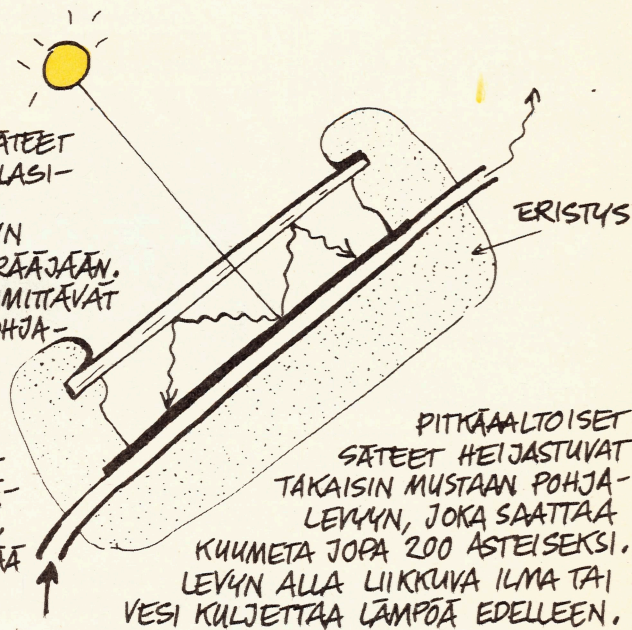 ÄTEET
LASI-
YN
RÄÄJÄÄN.
MITTÄVÄT
OHJA-
ÄÄ
ERISTYS
PITKÄAALTOISET
SÄTEET HEIJASTUVAT
TAKAISIN MUSTAAN POHJA-
LEVYYN, JOKA SAATTAA
KUUMETA JOPA 200 ASTEISEKSI.
LEVYN ALLA LIIKKUVA ILMA TAI
VESI KULJETTAA LÄMPÖÄ EDELLEEN.